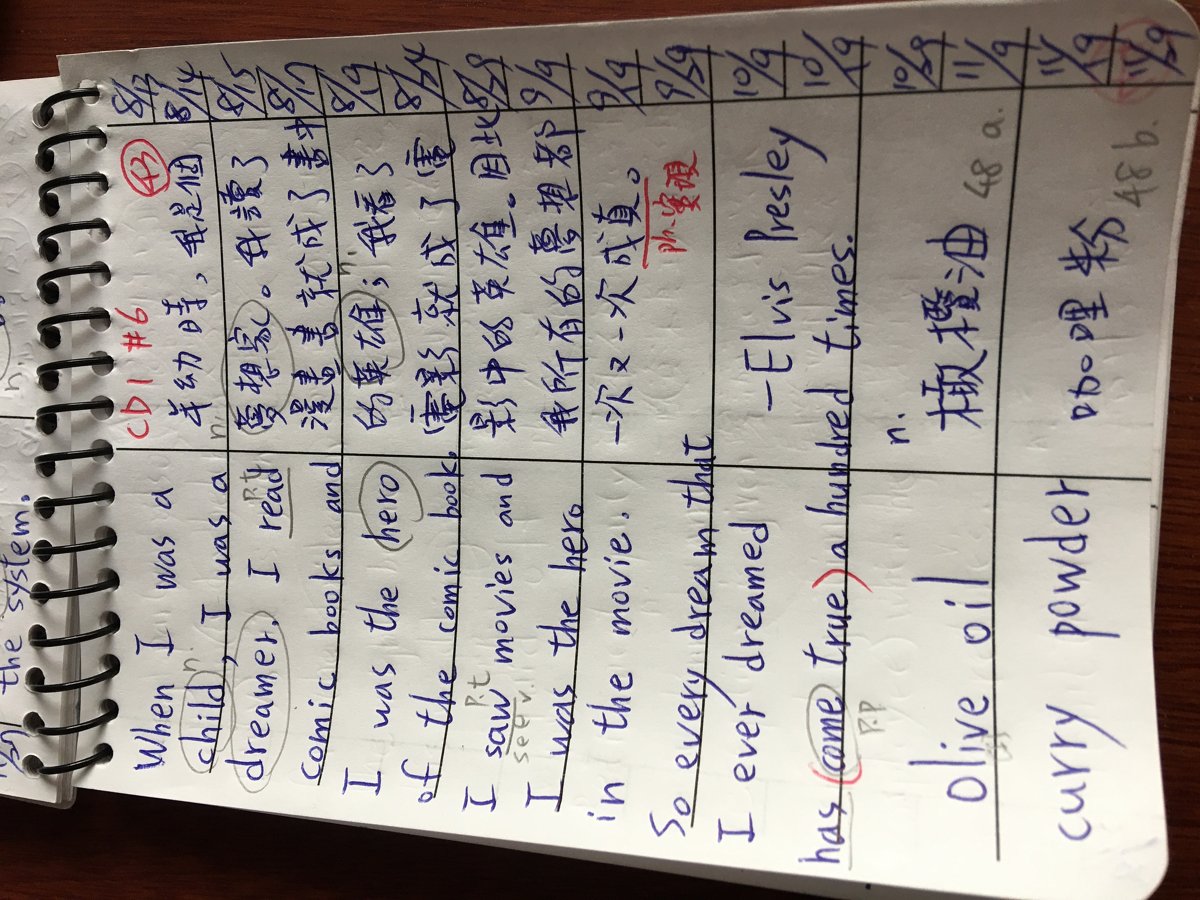 the system.
When I was a
child, I was a
n.
dreamer. I read
p.t
comic books and
I was the hero
of the comic book.
I saw movies and
p.t
see v.
I was the hero
in the movie.
So every dream that
I ever dreamed
has (come true) a hundred times.
p.p
—Elvis Presley
olive oil
curry powder
CD1 #6 43
年幼時，我是個
n.
夢想家。我讀了
漫畫書就成了書中
的英雄；我看了
n.
電影就成了電
影中的英雄。因此
我所有的夢想都
一次又一次成真。
ph.實現
n.
橄欖油 48 a.
咖哩粉 48 b.
8/13
8/14
8/15
8/17
8/19
8/24
8/29
9/9
9/19
9/29
10/9
10/19
10/29
11/9
11/19
11/29